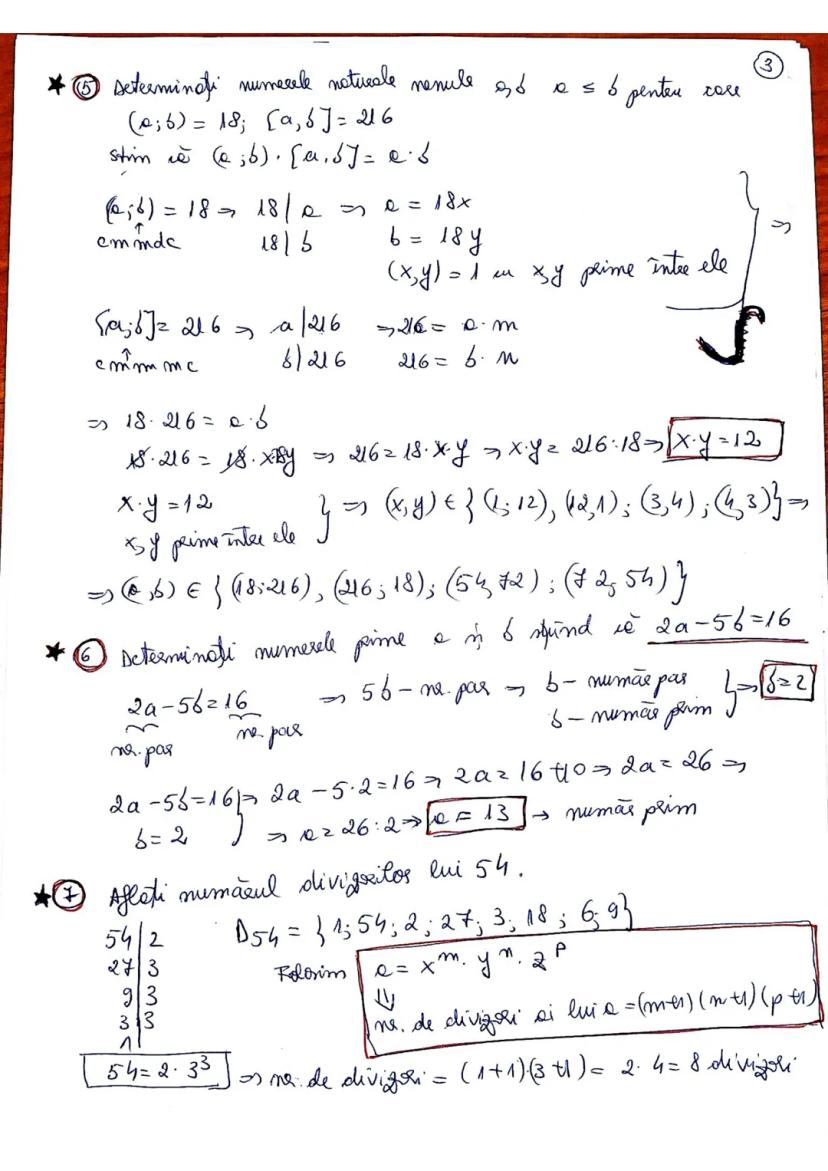 3
★ 5 Determinați numerele naturale nenule a, b a ≤ b pentru care
(a;b) = 18; [a,b] = 216
știm că (a;b) · [a,b] = a·b
(a;b) = 18 ⇒ 18 | a ⇒ a = 18x
cmmdc 18 | b b = 18y
(x,y) = 1 x,y prime între ele
} ⇒
[a;b] = 216 ⇒ a | 216 ⇒ 216 = a·m
cmmmc b | 216 216 = b·n
⇒ 18·216 = a·b
18·216 = 18·x·18y ⇒ 216 = 18·x·y ⇒ x·y = 216:18 ⇒ x·y = 12
x·y = 12
x,y prime între ele } ⇒ (x,y) ∈ {(1;12), (12,1); (3,4); (4,3)} ⇒
⇒ (a,b) ∈ {(18;216), (216;18); (54,72); (72;54)}
★ 6 Determinați numerele prime a și b știind că 2a-5b=16
2a-5b=16 ⇒ 5b - nr. par ⇒ b - număr par
nr. par nr. par b - număr prim } ⇒ b=2
2a-5b=16 } ⇒ 2a-5·2=16 ⇒ 2a=16+10 ⇒ 2a=26 ⇒
b=2 ⇒ a=26:2 ⇒ a = 13 → număr prim
★ 7 Aflați numărul divizorilor lui 54.
54 | 2 D54 = {1;54;2;27;3,18;6;9}
27 | 3 Folosim a = x^m · y^n · z^p
9 | 3 ⇓
3 | 3 nr. de divizori ai lui a = (m+1)(n+1)(p+1)
1 |
54 = 2·3³ ⇒ nr. de divizori = (1+1)·(3+1) = 2·4 = 8 divizori